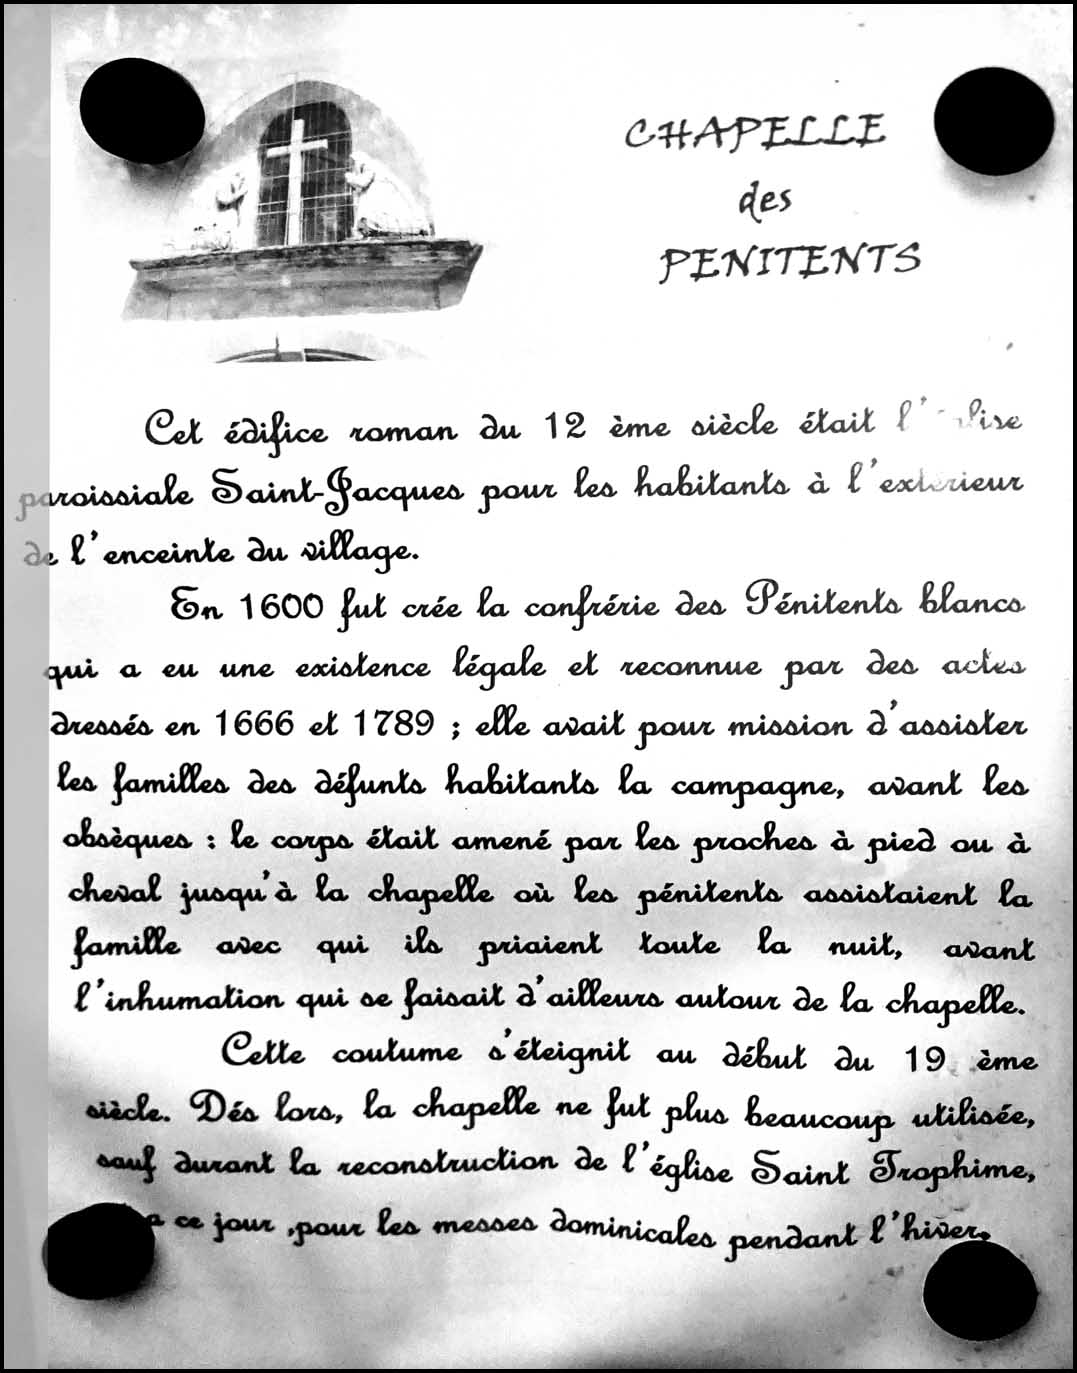 CHAPELLE
des
PENITENTS
Cet édifice roman du 12 ème siècle était l'église
paroissiale Saint-Jacques pour les habitants à l'extérieur
de l'enceinte du village.
En 1600 fut crée la confrérie des Pénitents blancs
qui a eu une existence légale et reconnue par des actes
dressés en 1666 et 1789 ; elle avait pour mission d'assister
les familles des défunts habitants la campagne, avant les
obsèques : le corps était amené par les proches à pied ou à
cheval jusqu'à la chapelle où les pénitents assistaient la
famille avec qui ils priaient toute la nuit, avant
l'inhumation qui se faisait d'ailleurs autour de la chapelle.
Cette coutume s'éteignit au début du 19 ème
siècle. Dés lors, la chapelle ne fut plus beaucoup utilisée,
sauf durant la reconstruction de l'église Saint Trophime,
ce jour ,pour les messes dominicales pendant l'hiver.